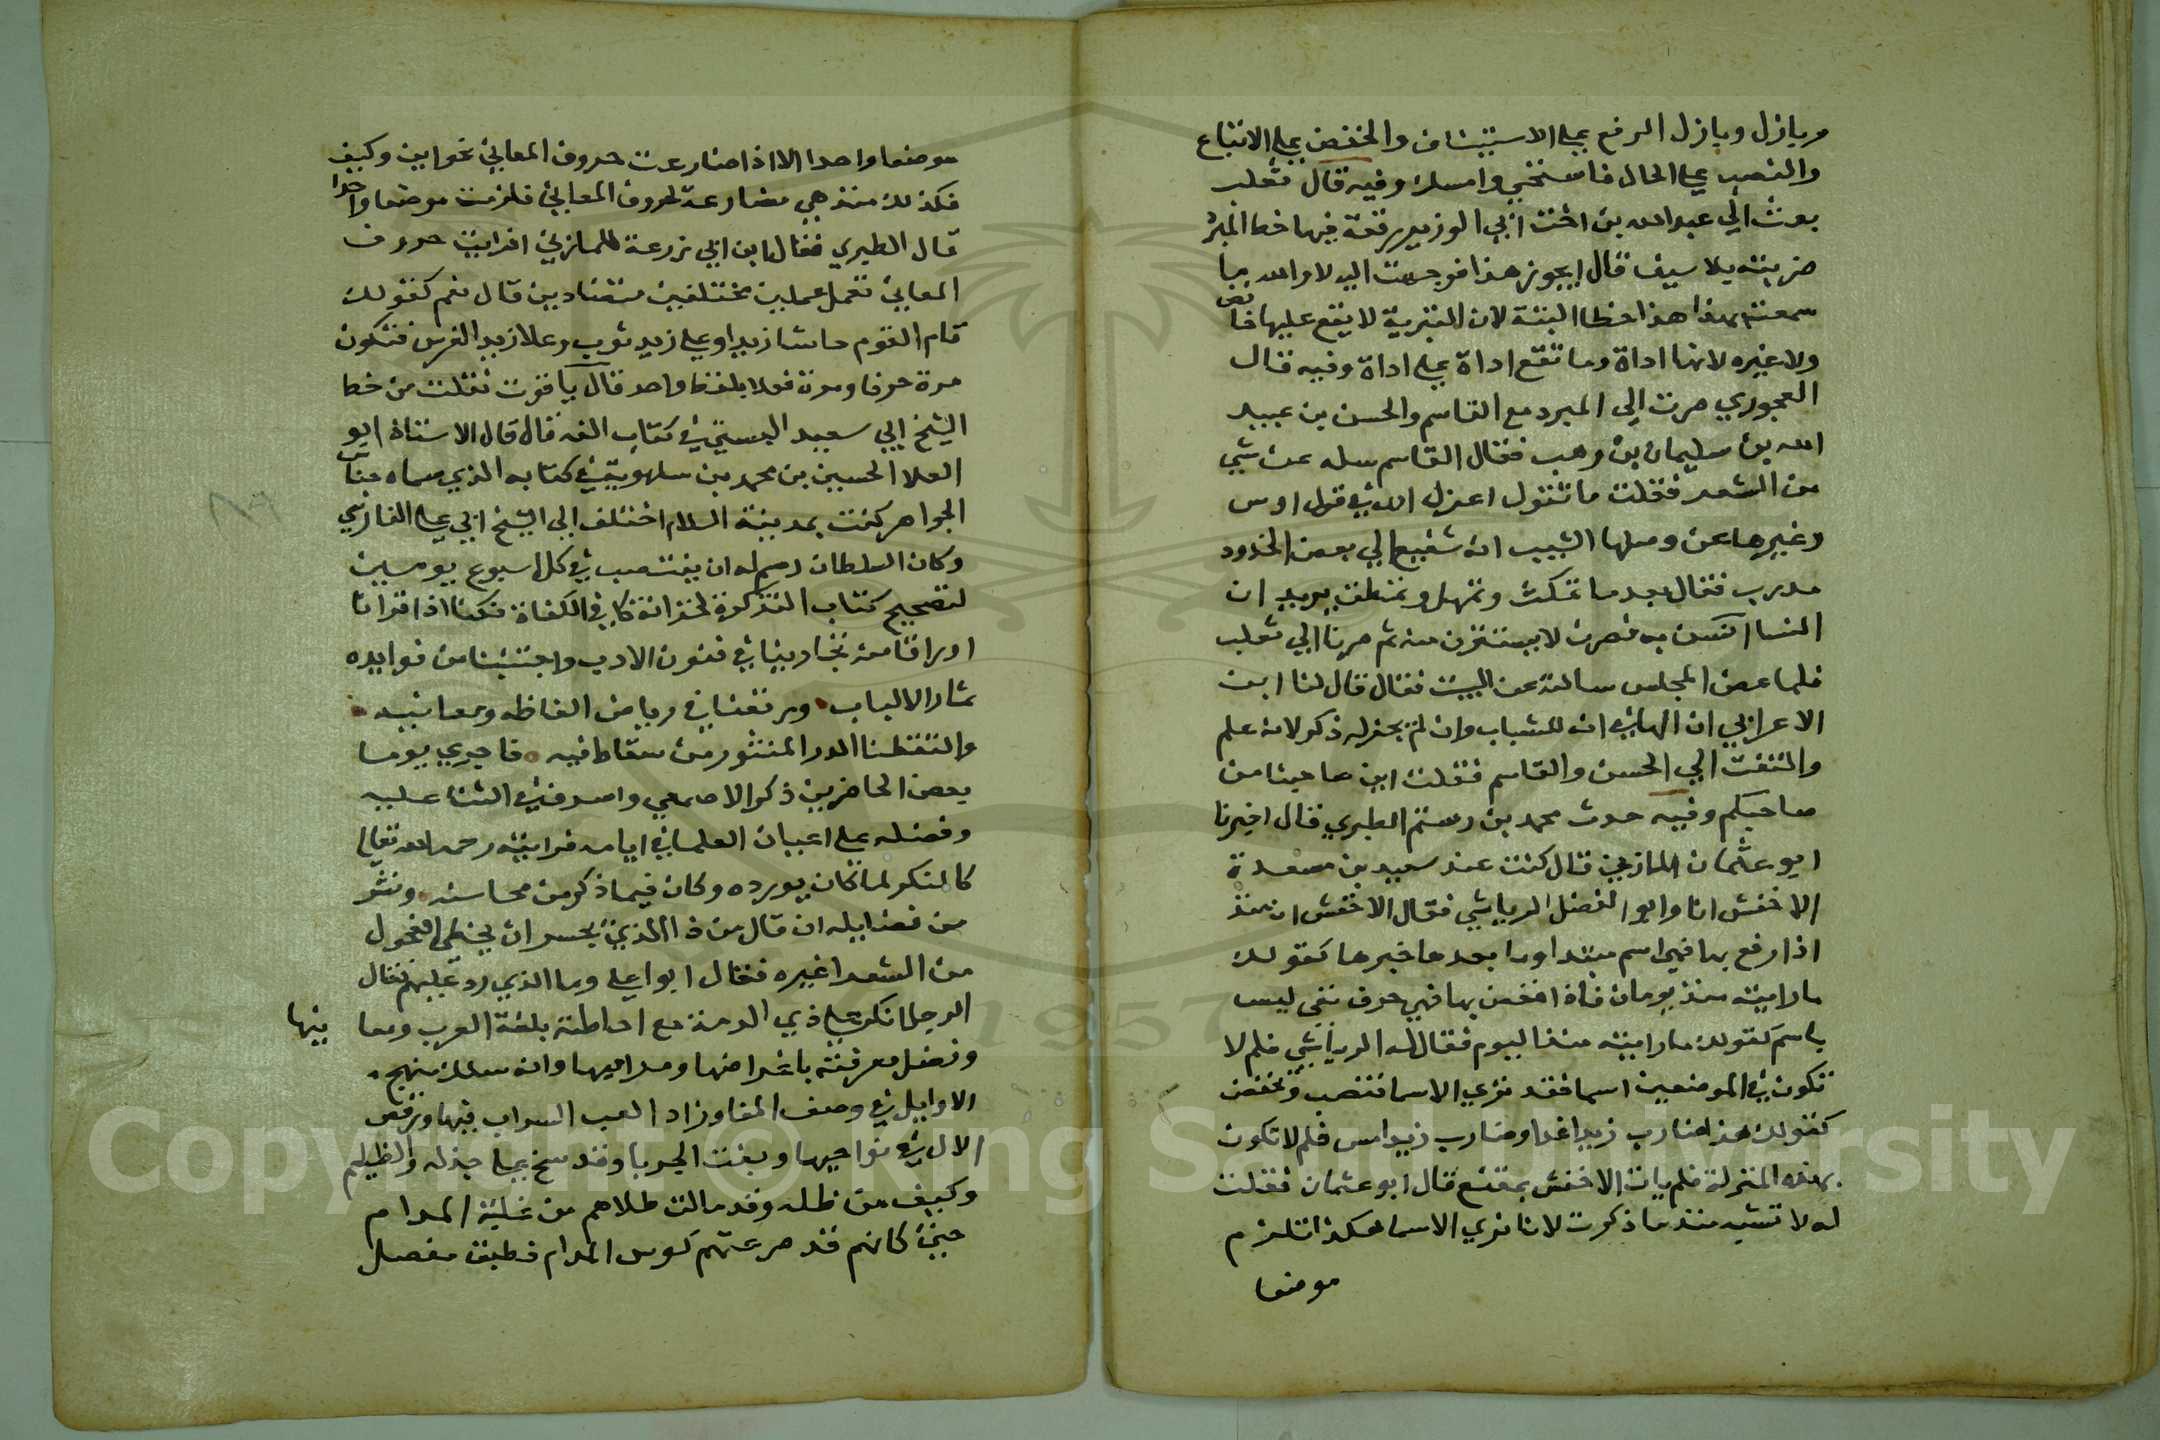 وبازل وبازل الرفع على الاستيناف والخفض على الاتباع
والنصب على الحال فاستخبي وامسك وفيه قال ثعلب
بعث الي عبدالله بن اخت ابي الوزير رقعة فيها خط المبرد
ضربته بلا سيف قال ايجوز هذا فوجهت اليه لا والله ما
سمعت بهذا هذا خطا البتة لان التبرية لا يقع عليها خافض
ولا غيره لانها اداة وما تقع اداة على اداة وفيه قال
العجوزي صرت الى المبرد مع القاسم والحسن بن عبيد
الله بن سليمان بن وهب فقال القاسم سله عن شي
من الشعر فقلت ما تقول اعزك الله في قول اوس
وغيرها عن وصلها الشيب انه شفيع الي بعض الخدود
مدرب فقال بعد ما تمكث وتمهل وتمطق يريد ان
النسا انسن به فصرن لا يستترن منه ثم صرنا الي ثعلب
فلما غص المجلس سالته عن البيت فقال قال لنا ابن
الاعرابي ان الهاء في انه للشباب وان لم يجز له ذكر لانه علم
والتفت الي الحسن والقاسم فقلت اين صاحبنا من
صاحبكم وفيه حدث محمد بن رستم الطبري قال اخبرنا
ابو عثمان المازني قال كنت عند سعيد بن مسعدة
الاخفش انا وابو الفضل الرياشي فقال الاخفش ان منذ
اذا رفع بها فهي اسم مبتدا وما بعدها خبرها كقولك
ما رايته منذ يومان فاذا خفض بها فهي حرف نفي ليس
باسم كقولك ما رايته منذ اليوم فقال له الرياشي فلم لا
تكون في الموضعين اسما فقد نري الاسما تنصب وتخفض
كقولك هذا ضارب زيدا غدا وضارب زيد امس فلم لا تكون
بهذه المنزلة فلم يات الاخفش بمقنع قال ابو عثمان فقلت
له لا تشبه منذ ما ذكرت لانا نري الاسما هكذا تلزم
موضعا
موضعا واحدا الا اذا ضارعت حروف المعاني نحو اين وكيف
فكذلك منذ هي مضارعة لحروف المعاني فلزمت موضعا واحدا
قال الطبري فقال ابن ابي زرعة للمازني افرايت حروف
المعاني تعمل عملين مختلفين متضادين قال نعم كقولك
قام القوم حاشا زيد اوعلي زيد ثوب وعلا زيد الفرس فتكون
مرة حرفا ومرة فعلا بلفظ واحد قال ياقوت نقلت من خط
الشيخ ابي سعيد البستي في كتاب الفه قال قال الاستاذ ابو
العلا الحسين بن محمد بن سلهوية في كتابه الذي سماه
الجواهر كنت بمدينة السلام اختلف الى الشيخ ابي علي الفارسي
وكان السلطان رسم له ان ينتصب في كل اسبوع يومين
لتصحيح كتاب التذكرة لخزانة كافي الكفاة فكنا اذا قرانا
اوراقا منه تجارينا في فنون الادب واجتنينا من فوايده
ثمار الالباب ورتعنا في رياض الفاظه ومعانيه
والتقطنا الدر المنثور من سقاط فيه فاجري يوما
بعض الحاضرين ذكر الاصمعي واسرف في الثنا عليه
وفضله على اعيان العلما في ايامه فرايته رحمه الله تعالي
كالمنكر لما كان يورده وكان فيما ذكر من محاسنه ونشر
من فضايله ان قال من ذا الذي يجسر ان يخطي الفحول
من الشعرا غيره فقال ابو علي وما الذي رد عليهم فقال
الرجل انكر على ذي الرمة مع احاطته بلغة العرب ومعانيها
وفضل معرفته باغراضها ومراميها وانه سلك نهج
الاوايل في وصف المفاوز اذا لعب السراب فيها ورقص
الال في نواحيها ونعت الحربا وقد سنح علي جذله والظليم
وكيف من ظله وقد مالت طلاهم من غلبة المدام
حتى كانهم قد صرعتهم كوس المدام فطبق مفصل
1957
Copyright © King Saud University